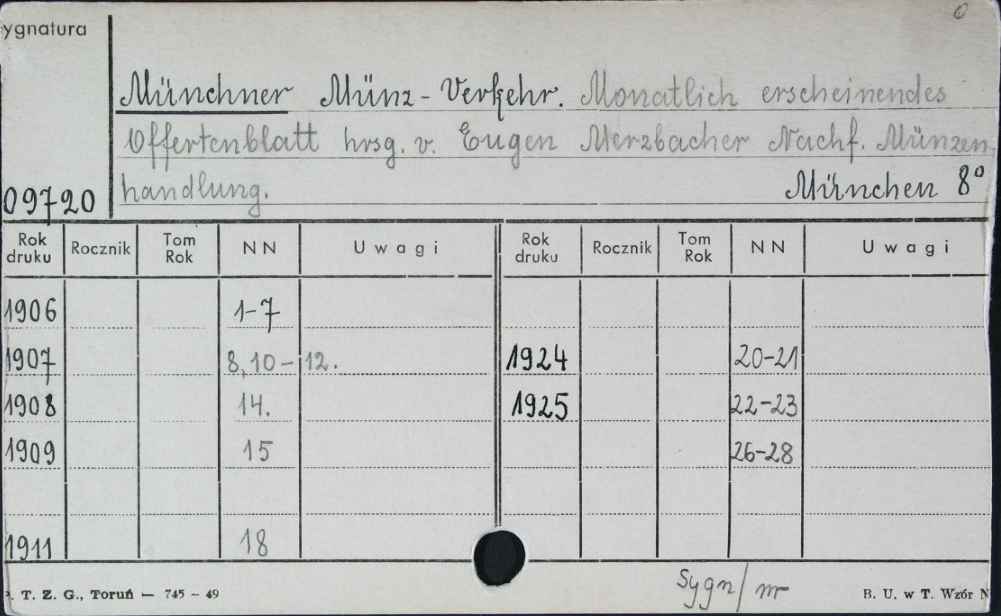 ygnatura
0
Münchner Münz-Verkehr. Monatlich erscheinendes
Offertenblatt hrsg. v. Eugen Merzbacher Nachf. Münzen
09720 handlung. München 8°
Rok druku Rocznik Tom Rok NN Uwagi Rok druku Rocznik Tom Rok NN Uwagi
1906 1-7
1907 8,10-12. 1924 20-21
1908 14. 1925 22-23
1909 15 26-28
1911 18
Sygn/nr
T. Z. G., Toruń — 745 - 49 B. U. w T. Wzór N